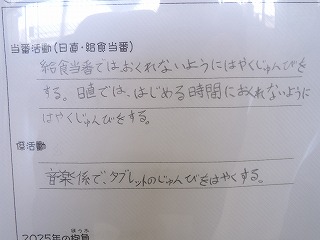 当番活動(日直・給食当番)
給食当番ではおくれないようにはやくじゅんびを
する。日直では、はじめる時間におくれないように
はやくじゅんびをする。
係活動
音楽係で、タブレットのじゅんびをはやくする。
2025年の抱負